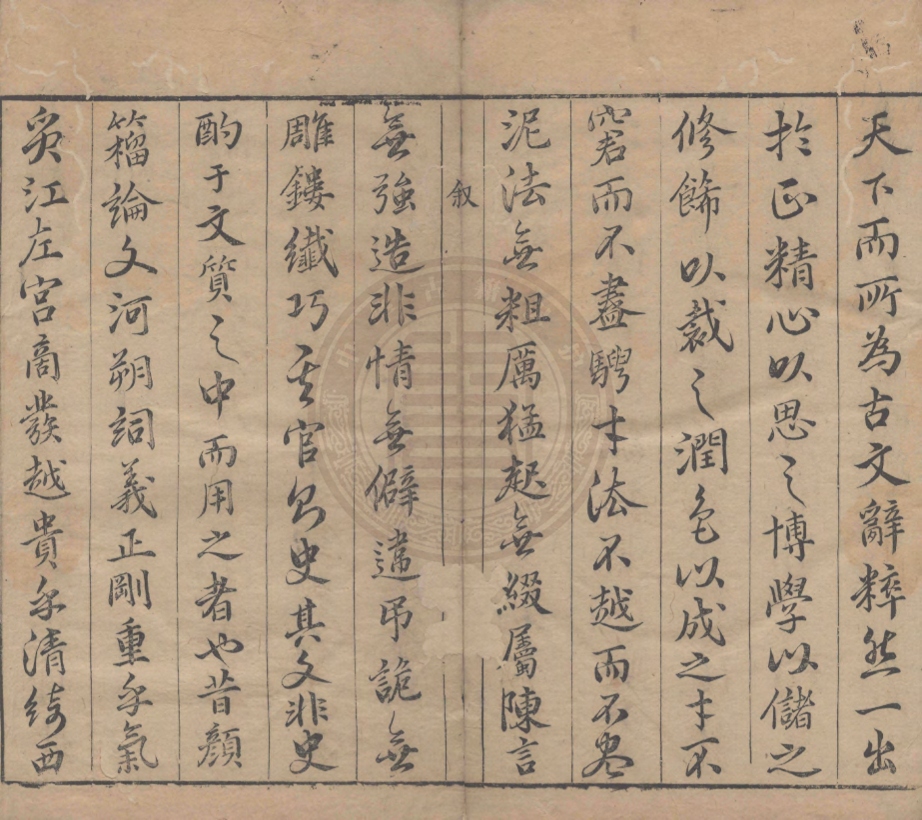 天下而所為古文辭粹然一出
於正精心以思之博學以儲之
修餙以裁之潤色以成之才不
窘而不盡騁才法不越而不尽
泥法無粗厲猛起無綴屬陳言
叙
無強造非情無僻違吊詭無
雕鏤纖巧其官史其文非史
酌于文質之中而用之者也昔顏
籀論文河朔詞義正剛重乎氣
貭江左宮商發越貴乎清綺西